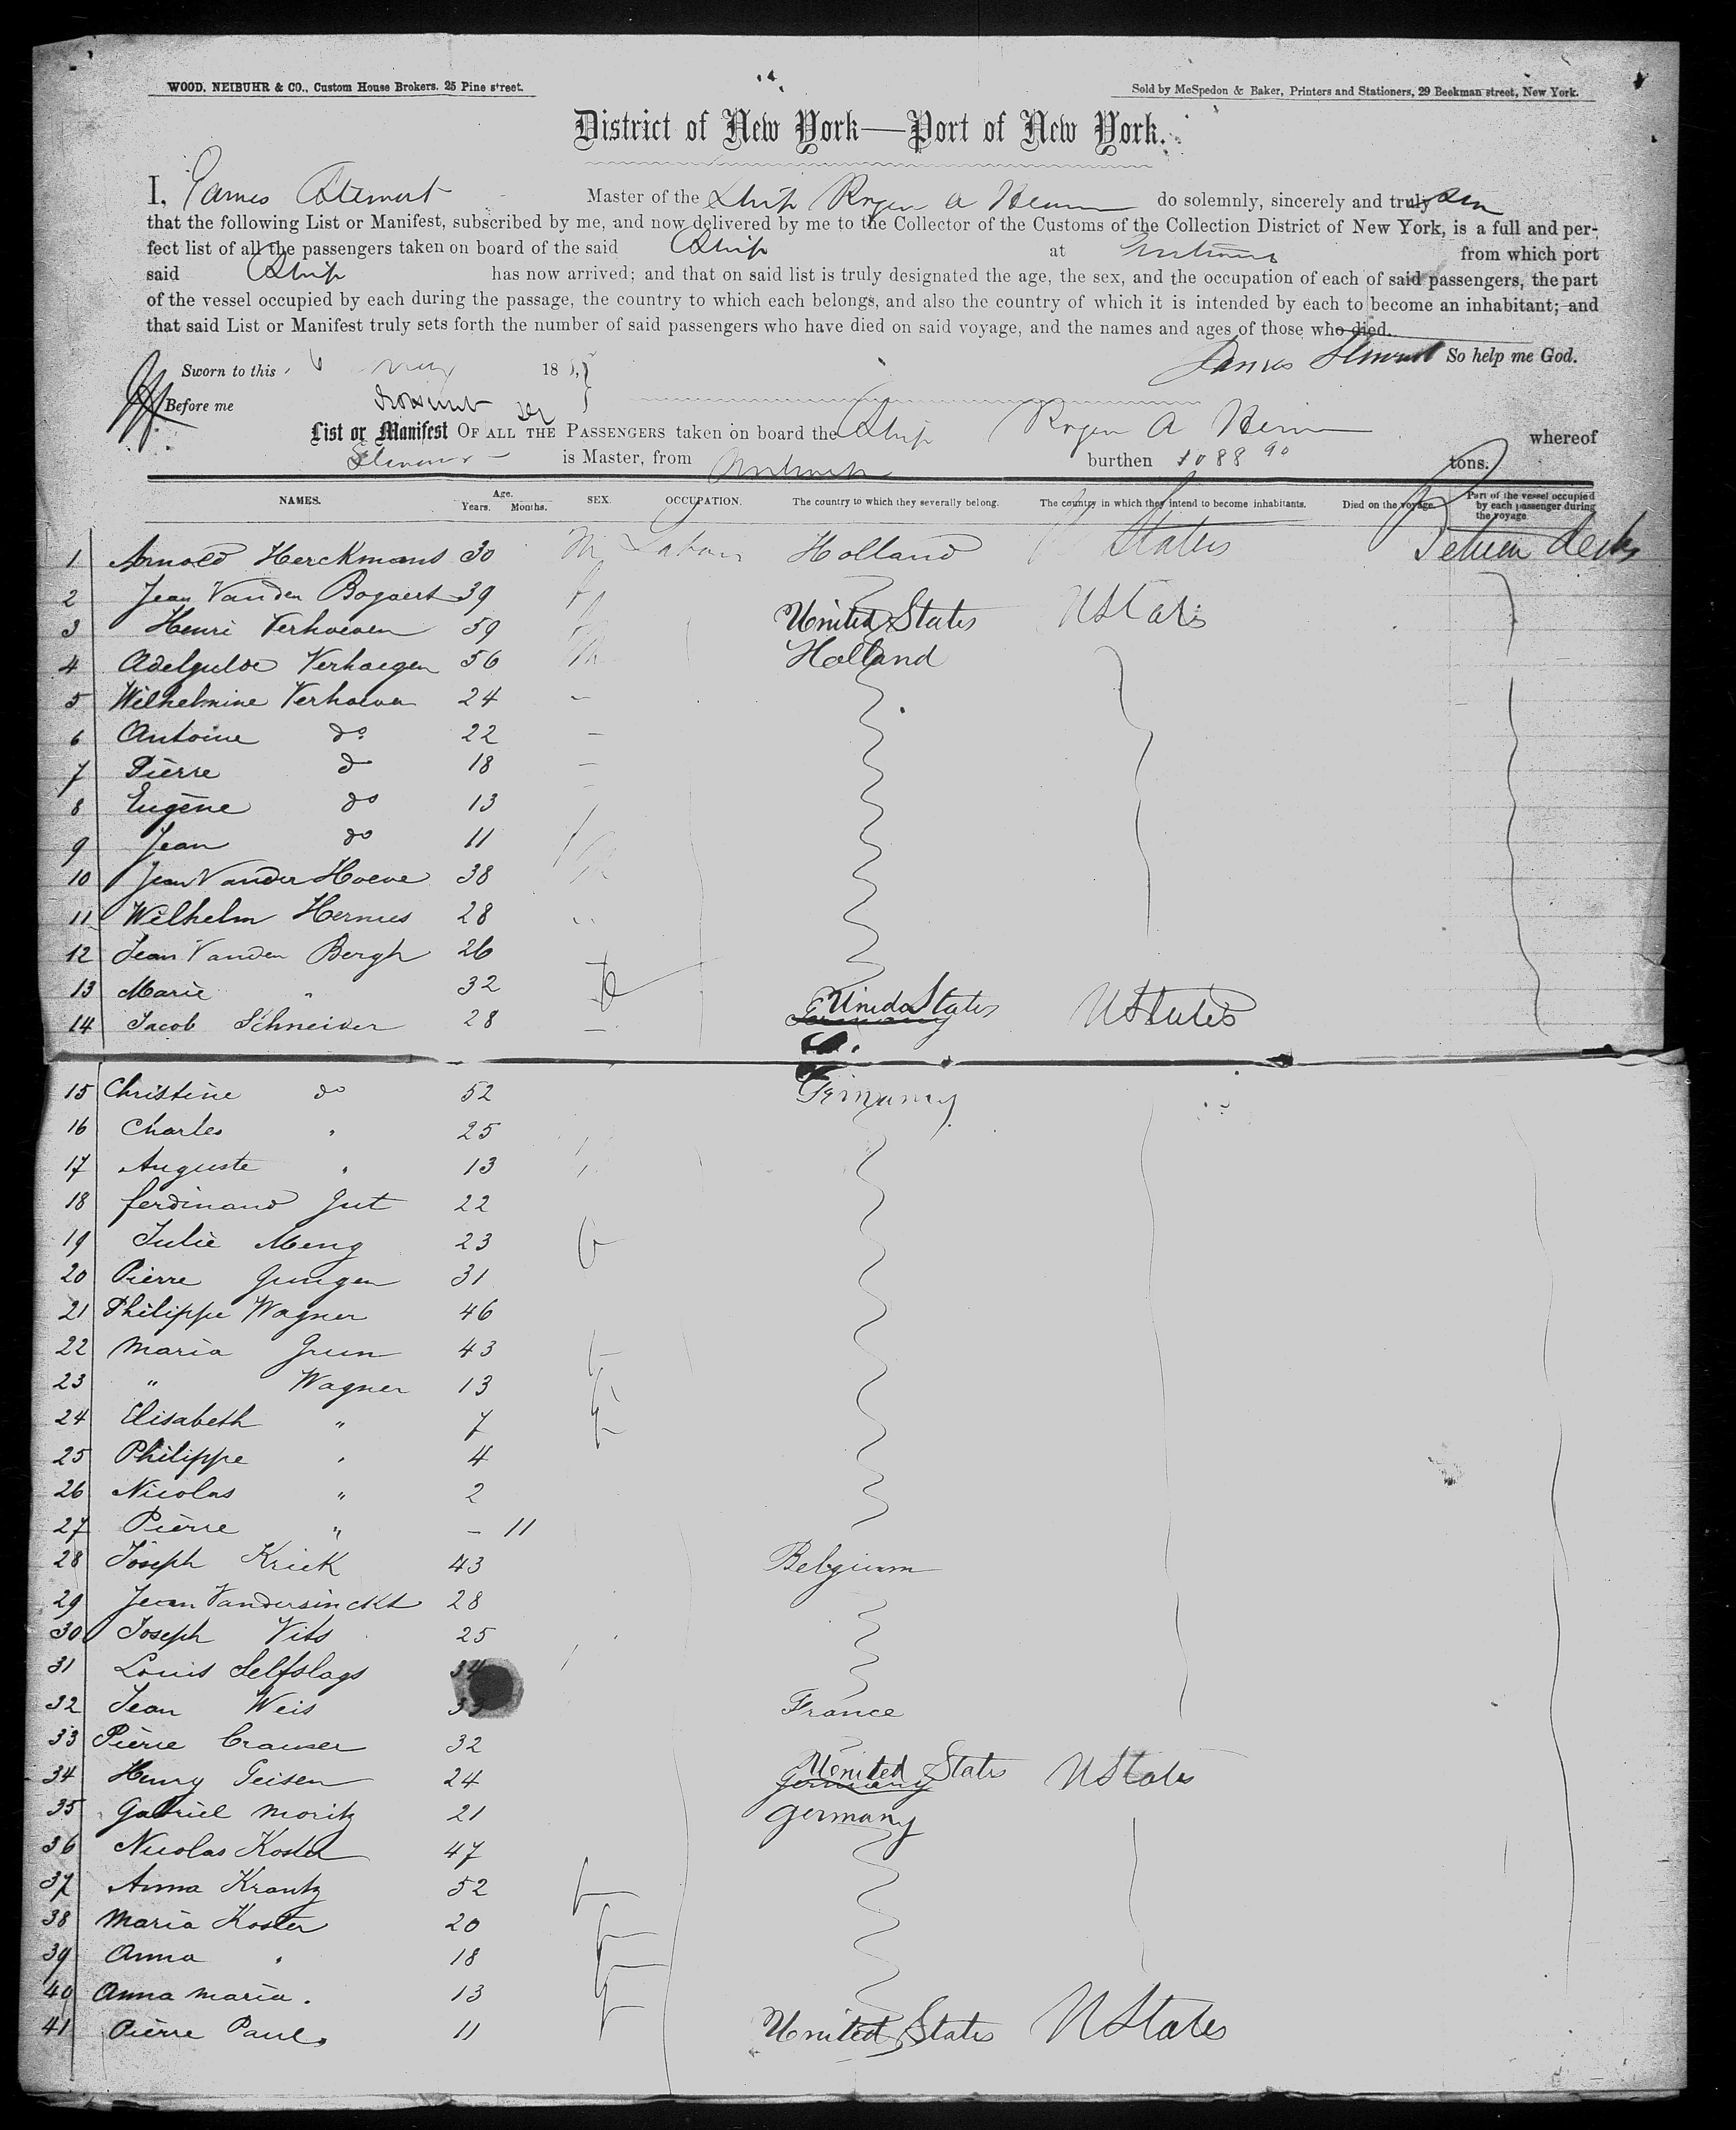 WOOD, NEIBUHR & CO., Custom House Brokers. 25 Pine street.
Sold by McSpedon & Baker, Printers and Stationers, 29 Beekman street, New York.
District of New York—Port of New York.
I, James Stewart Master of the Ship Roger A Heirn do solemnly, sincerely and truly
that the following List or Manifest, subscribed by me, and now delivered by me to the Collector of the Customs of the Collection District of New York, is a full and per-
fect list of all the passengers taken on board of the said Ship at Antwerp from which port
said Ship has now arrived; and that on said list is truly designated the age, the sex, and the occupation of each of said passengers, the part
of the vessel occupied by each during the passage, the country to which each belongs, and also the country of which it is intended by each to become an inhabitant; and
that said List or Manifest truly sets forth the number of said passengers who have died on said voyage, and the names and ages of those who died.
James Stewart So help me God.
Sworn to this 6 May 18
Before me
List or Manifest OF ALL THE PASSENGERS taken on board the Ship Roger A Heirn whereof
Stewart is Master, from Antwerp burthen 1088 90 tons.
NAMES. Age. Years. Months. SEX. OCCUPATION. The country to which they severally belong. The country in which they intend to become inhabitants. Died on the voyage. Part of the vessel occupied by each passenger during the voyage
1 Arnold Herckmans 30 M Labor Holland U States Between decks
2 Jean Vanden Bogaert 39
3 Henri Verhoeven 59 United States U States
4 Adelgulde Verhaegen 56 Holland
5 Wilhelmine Verhoeven 24 –
6 Antoine do 22 –
7 Pierre do 18 –
8 Eugène do 13
9 Jean do 11
10 Jean Vander Hoeve 38
11 Wilhelm Hermes 28
12 Jean Vanden Bergh 26
13 Marie " 32
14 Jacob Schneider 28 – Germany United States U States
15 Christine do 52 Germany
16 Charles " 25
17 Auguste " 13
18 ferdinand Gut 22
19 Julie Meng 23 f
20 Pierre Gungen 31
21 Philippe Wagner 46
22 Maria Grun 43 f
23 " Wagner 13 f
24 Elisabeth " 7 f
25 Philippe " 4
26 Nicolas " 2
27 Pierre " – 11
28 Joseph Krick 43 Belgium
29 Jean Vandersinckt 28
30 Joseph Vits 25
31 Louis Selfslags 34
32 Jean Weis 33 France
33 Pierre Crauser 32
34 Henry Geisen 24 Germany United States U States
35 Gabriel Moritz 21 Germany
36 Nicolas Koster 47
37 Anna Krantz 52 f
38 Maria Koster 20 f
39 Anna " 18 f
40 Anna Maria " 13 f
41 Pierre Paul " 11 United States U States